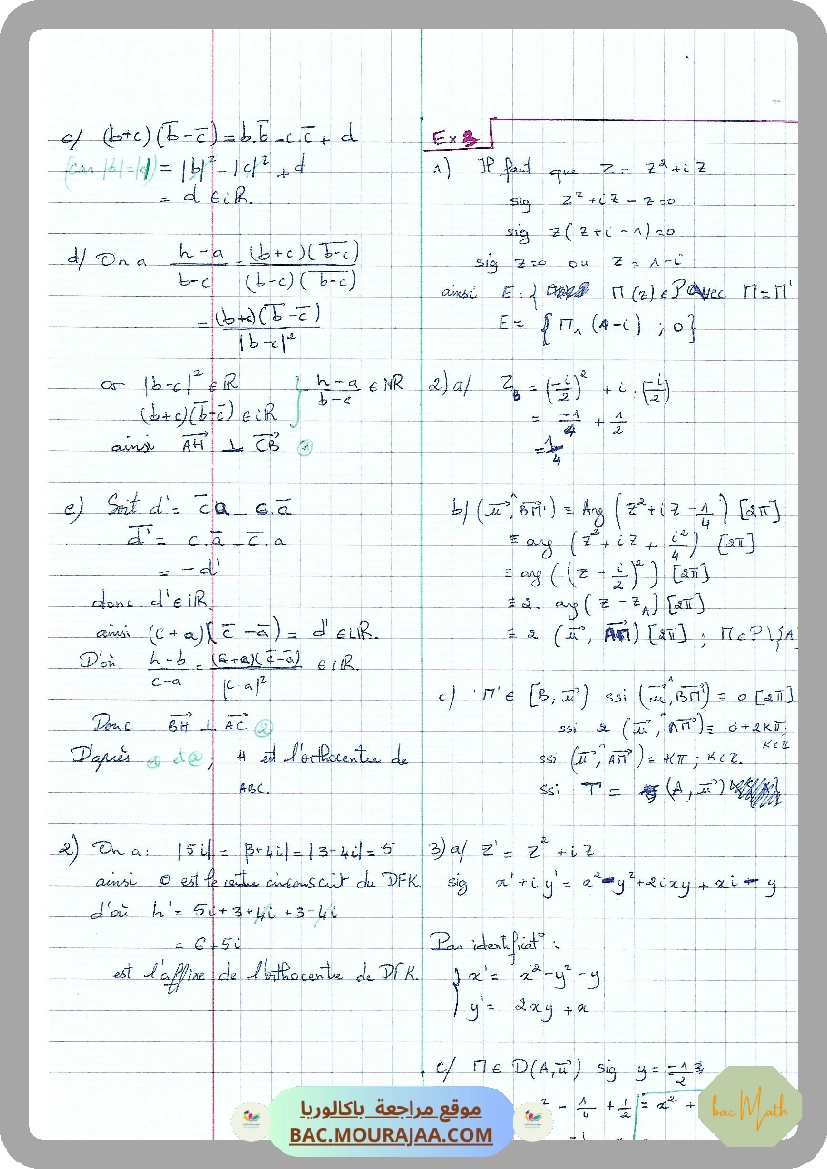 c/ (b+c)(b̅-c̅) = b.b̅ - c.c̅ + d
(car |b|=|c|) = |b|² - |c|² + d
= d ∈ iℝ.
d/ On a (h-a)/(b-c) = (b+c)(b̅-c̅)/(b-c)(b̅-c̅)
= (b+c)(b̅-c̅)/|b-c|²
or |b-c|² ∈ ℝ
(b+c)(b̅-c̅) ∈ iℝ } (h-a)/(b-c) ∈ iℝ
ainsi AH ⊥ CB
e) Soit d' = c̅a - c.a̅
d̅' = c.a̅ - c̅.a
= -d'
donc d' ∈ iℝ.
ainsi (c+a)(c̅-a̅) = d' ∈ iℝ.
D'où (h-b)/(c-a) = (c+a)(c̅-a̅)/|c-a|² ∈ iℝ.
Donc BH ⊥ AC ②
D'après ① et ②, H est l'orthocentre de
ABC.
2) On a : |5i| = |3+4i| = |3-4i| = 5
ainsi O est le centre circonscrit du DFK
d'où h' = 5i+3+4i+3-4i
= 6+5i
est l'affixe de l'orthocentre de DFK.
Ex 3
1) Il faut que Z = Z²+iZ
sig Z²+iZ-Z=0
sig Z(Z+i-1)=0
sig Z=0 ou Z=1-i
ainsi E={ M(z) ∈ P avec M=M'
E = {M₁(1-i) ; 0}
2) a/ Z_B = (-i/2)² + i.(-i/2)
= -1/4 + 1/2
= 1/4
b/ (u, BM') ≡ Arg(Z²+iZ-1/4) [2π]
≡ arg(Z²+iZ+i²/4) [2π]
≡ arg((Z-i/2)²) [2π]
≡ 2.arg(Z-Z_A) [2π]
≡ 2(u, AM) [2π] ; M ∈ P\{A
c) M' ∈ [B,u) ssi (u,BM') = 0 [2π]
ssi 2(u, AM) = 0+2Kπ; K∈Z
ssi (u, AM) = Kπ ; K∈Z.
ssi T = (A,u)
3) a/ Z' = Z²+iZ
sig x'+iy' = x²-y²+2ixy+xi-y
Par identificat° :
{ x' = x²-y²-y
y' = 2xy+x
c/ M ∈ D(A,u) sig y = -1/2
² - 1/4 + 1/2 = x² +
موقع مراجعة باكالوريا
BAC.MOURAJAA.COM
bac Math